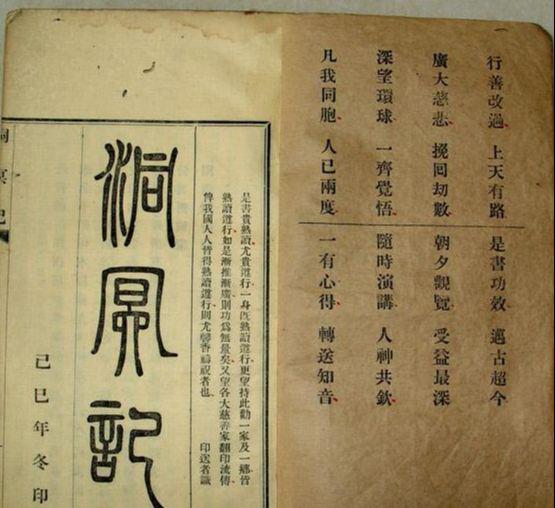 行善改過 上天有路
廣大慈悲 挽回劫數
深望環球 一齊覺悟
凡我同胞 人已兩度
是書功效 邁古超今
朝夕觀覽 受益最深
隨時演講 人神共欽
一有心得 轉送知音
是書貴熟讀尤貴遵行一身既熟讀遵行更望持此勸一家及一鄉皆
熟讀遵行如是漸推漸廣則功爲無量矣又望各大慈善家翻印流傳
俾我國人人皆得熟讀遵行則尤馨香禱祝者也 印送者識
洞冥記
己巳年冬印
洞冥記